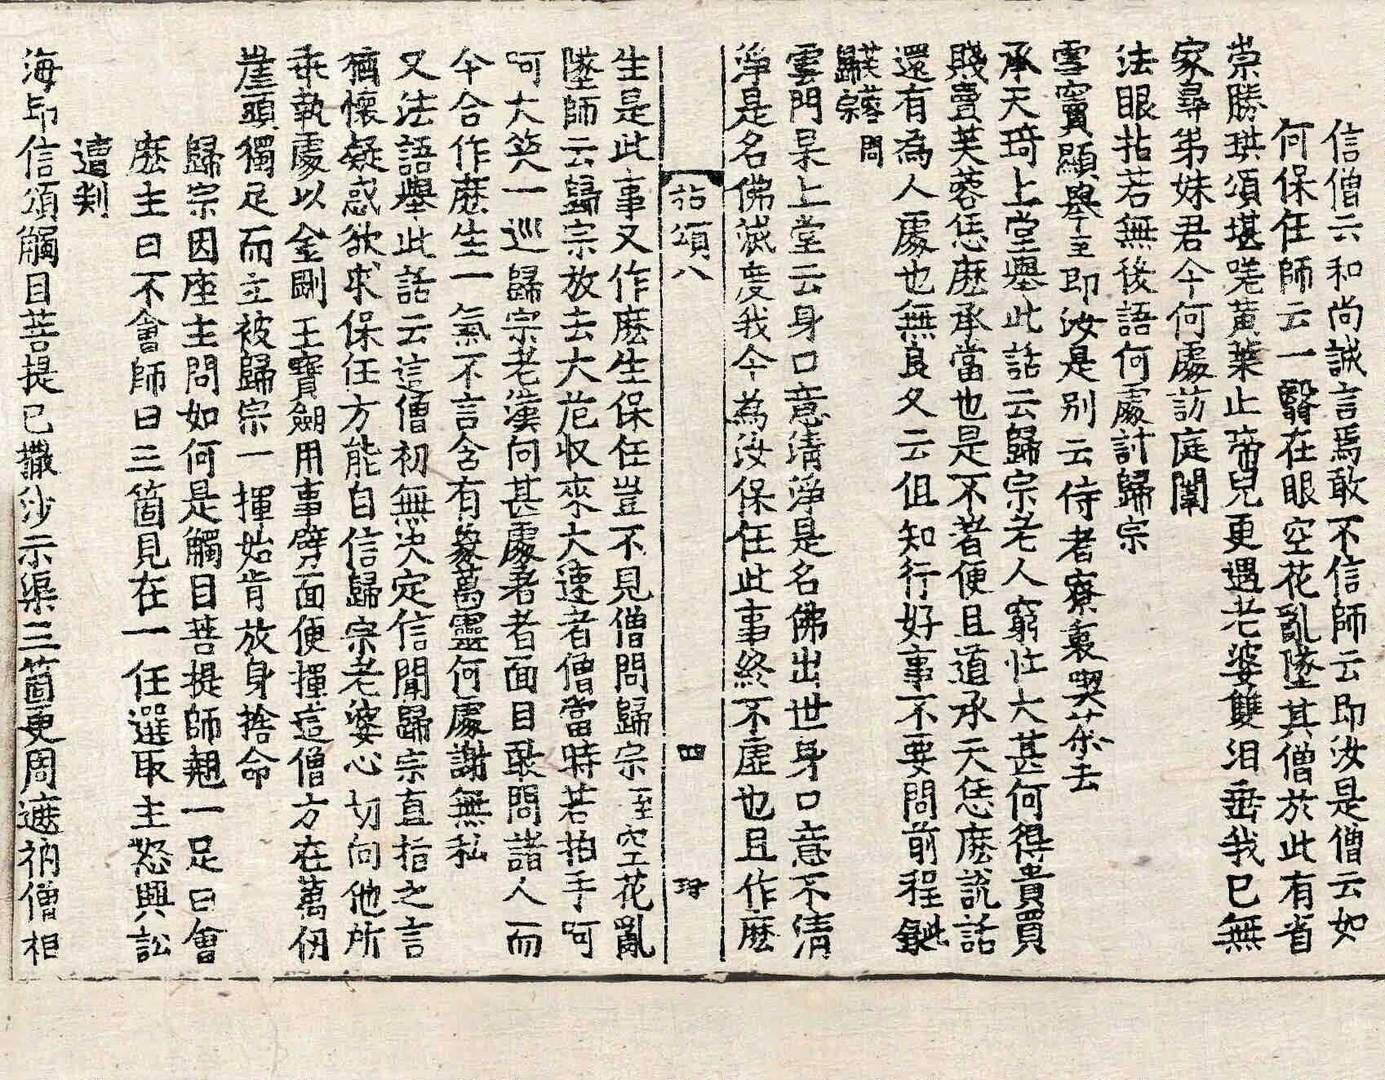 信僧云和尚誠言焉敢不信師云即汝是僧云如
何保任師云一翳在眼空花亂墜其僧於此有省
崇勝珙頌堪嗟黃葉止啼兒更遇老婆雙泪垂我已無
家尋弟妹君今何處訪庭闈
法眼拈若無後語何處討歸宗
雪竇顯舉至即汝是別云侍者寮裏喫茶去
承天琦上堂舉此話云歸宗老人窮忙大甚何得貴買
賤賣芙蓉恁麽承當也是不著便且道承天恁麽說話
還有為人處也無良久云但知行好事不要問前程此錄
芙蓉問
歸宗
雲門杲上堂云身口意清淨是名佛出世身口意不清
淨是名佛滅度我今為汝保任此事終不虛也且作麽
拈頌八 四 珎
生是此事又作麽生保任豈不見僧問歸宗至空花亂
墜師云歸宗放去大茫收來大速者僧當時若拍手呵
呵大笑一巡歸宗老漢向甚處著者面目敢問諸人而
今合作麽生一氣不言含有象萬靈何處謝無私
又法語舉此話云這僧初無决定信聞歸宗直指之言
猶懷疑惑欲求保任方能自信歸宗老婆心切向他所
乖執處以金剛王寶劒用事劈面便揮這僧方在萬仞
崖頭獨足而立被歸宗一揮始肯放身捨命
歸宗因座主問如何是觸目菩提師翹一足曰會
麽主曰不會師曰三箇見在一任選取主怒興訟
遭判
海印信頌觸目菩提已撒沙示渠三箇更周遮衲僧相